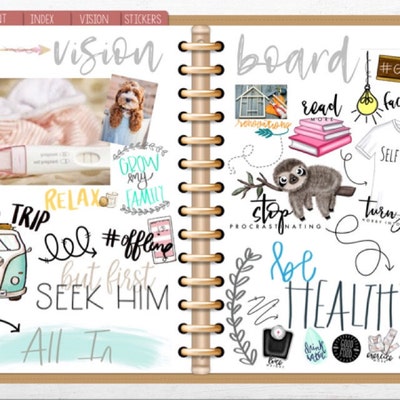 INDEX
VISION
STICKERS
vision
board
GROW
my
FAMILY
RELAX
TRIP
#offline
but first
SEEK HIM
All In
renovations
read
MORE
#G
SELF
stop
PROCRASTINATING
turn
be
HEALTH
drink
water
GOOD
FOOD